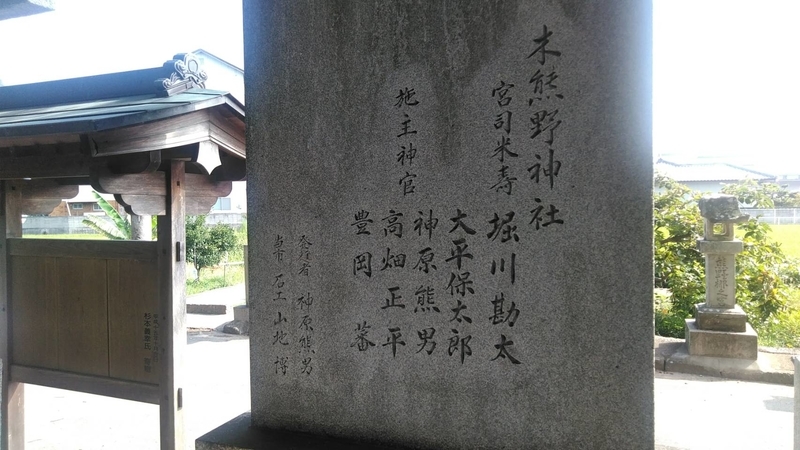 木熊野神社
宮司米寿 堀川勘太
大平保太郎
施主神官 神原熊男
高畑正平
豊岡蕃
発行者 神原熊男
当市 石工 山地博